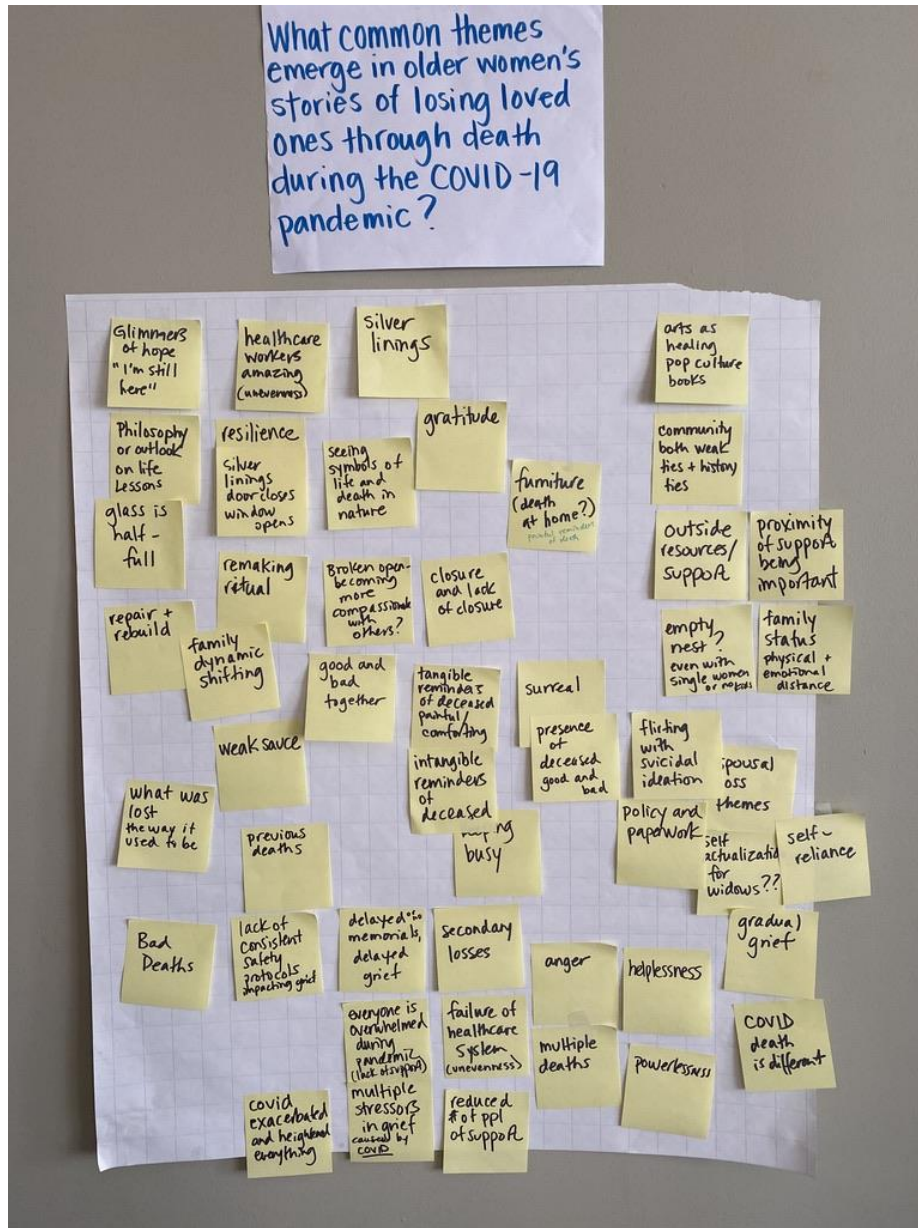 What common themes
emerge in older women's
stories of losing loved
ones through death
during the COVID-19
pandemic?
Glimmers
of hope
"I'm still
here"
healthcare
workers
amazing
(unevenness)
silver
linings
arts as
healing
pop culture
books
Philosophy
or outlook
on life
Lessons
resilience
silver
linings
door closes
window
opens
seeing
symbols of
life and
death in
nature
gratitude
furniture
(death
at home?)
painful reminders
of death
community
both weak
ties + history
ties
glass is
half-
full
remaking
ritual
Broken open-
becoming
more
compassionate
with
others?
closure
and lack
of closure
outside
resources/
support
proximity
of support
being
important
repair +
rebuild
family
dynamic
shifting
good and
bad
together
tangible
reminders
of deceased
painful/
comforting
surreal
empty
nest?
even with
single women
or no kids
family
status
physical +
emotional
distance
weak sauce
intangible
reminders
of
deceased
presence
of
deceased
good and
bad
flirting
with
suicidal
ideation
spousal
loss
themes
what was
lost
the way it
used to be
previous
deaths
busy
policy and
paperwork
self
actualization
for
widows??
self-
reliance
Bad
Deaths
lack of
consistent
safety
protocols
impacting grief
delayed
memorials,
delayed
grief
secondary
losses
anger
helplessness
gradual
grief
everyone is
overwhelmed
during
pandemic
(lack of support)
failure of
healthcare
system
(unevenness)
multiple
deaths
powerlessness
COVID
death
is different
covid
exacerbated
and heightened
everything
multiple
stressors
in grief
caused by
COVID
reduced
# of ppl
of support